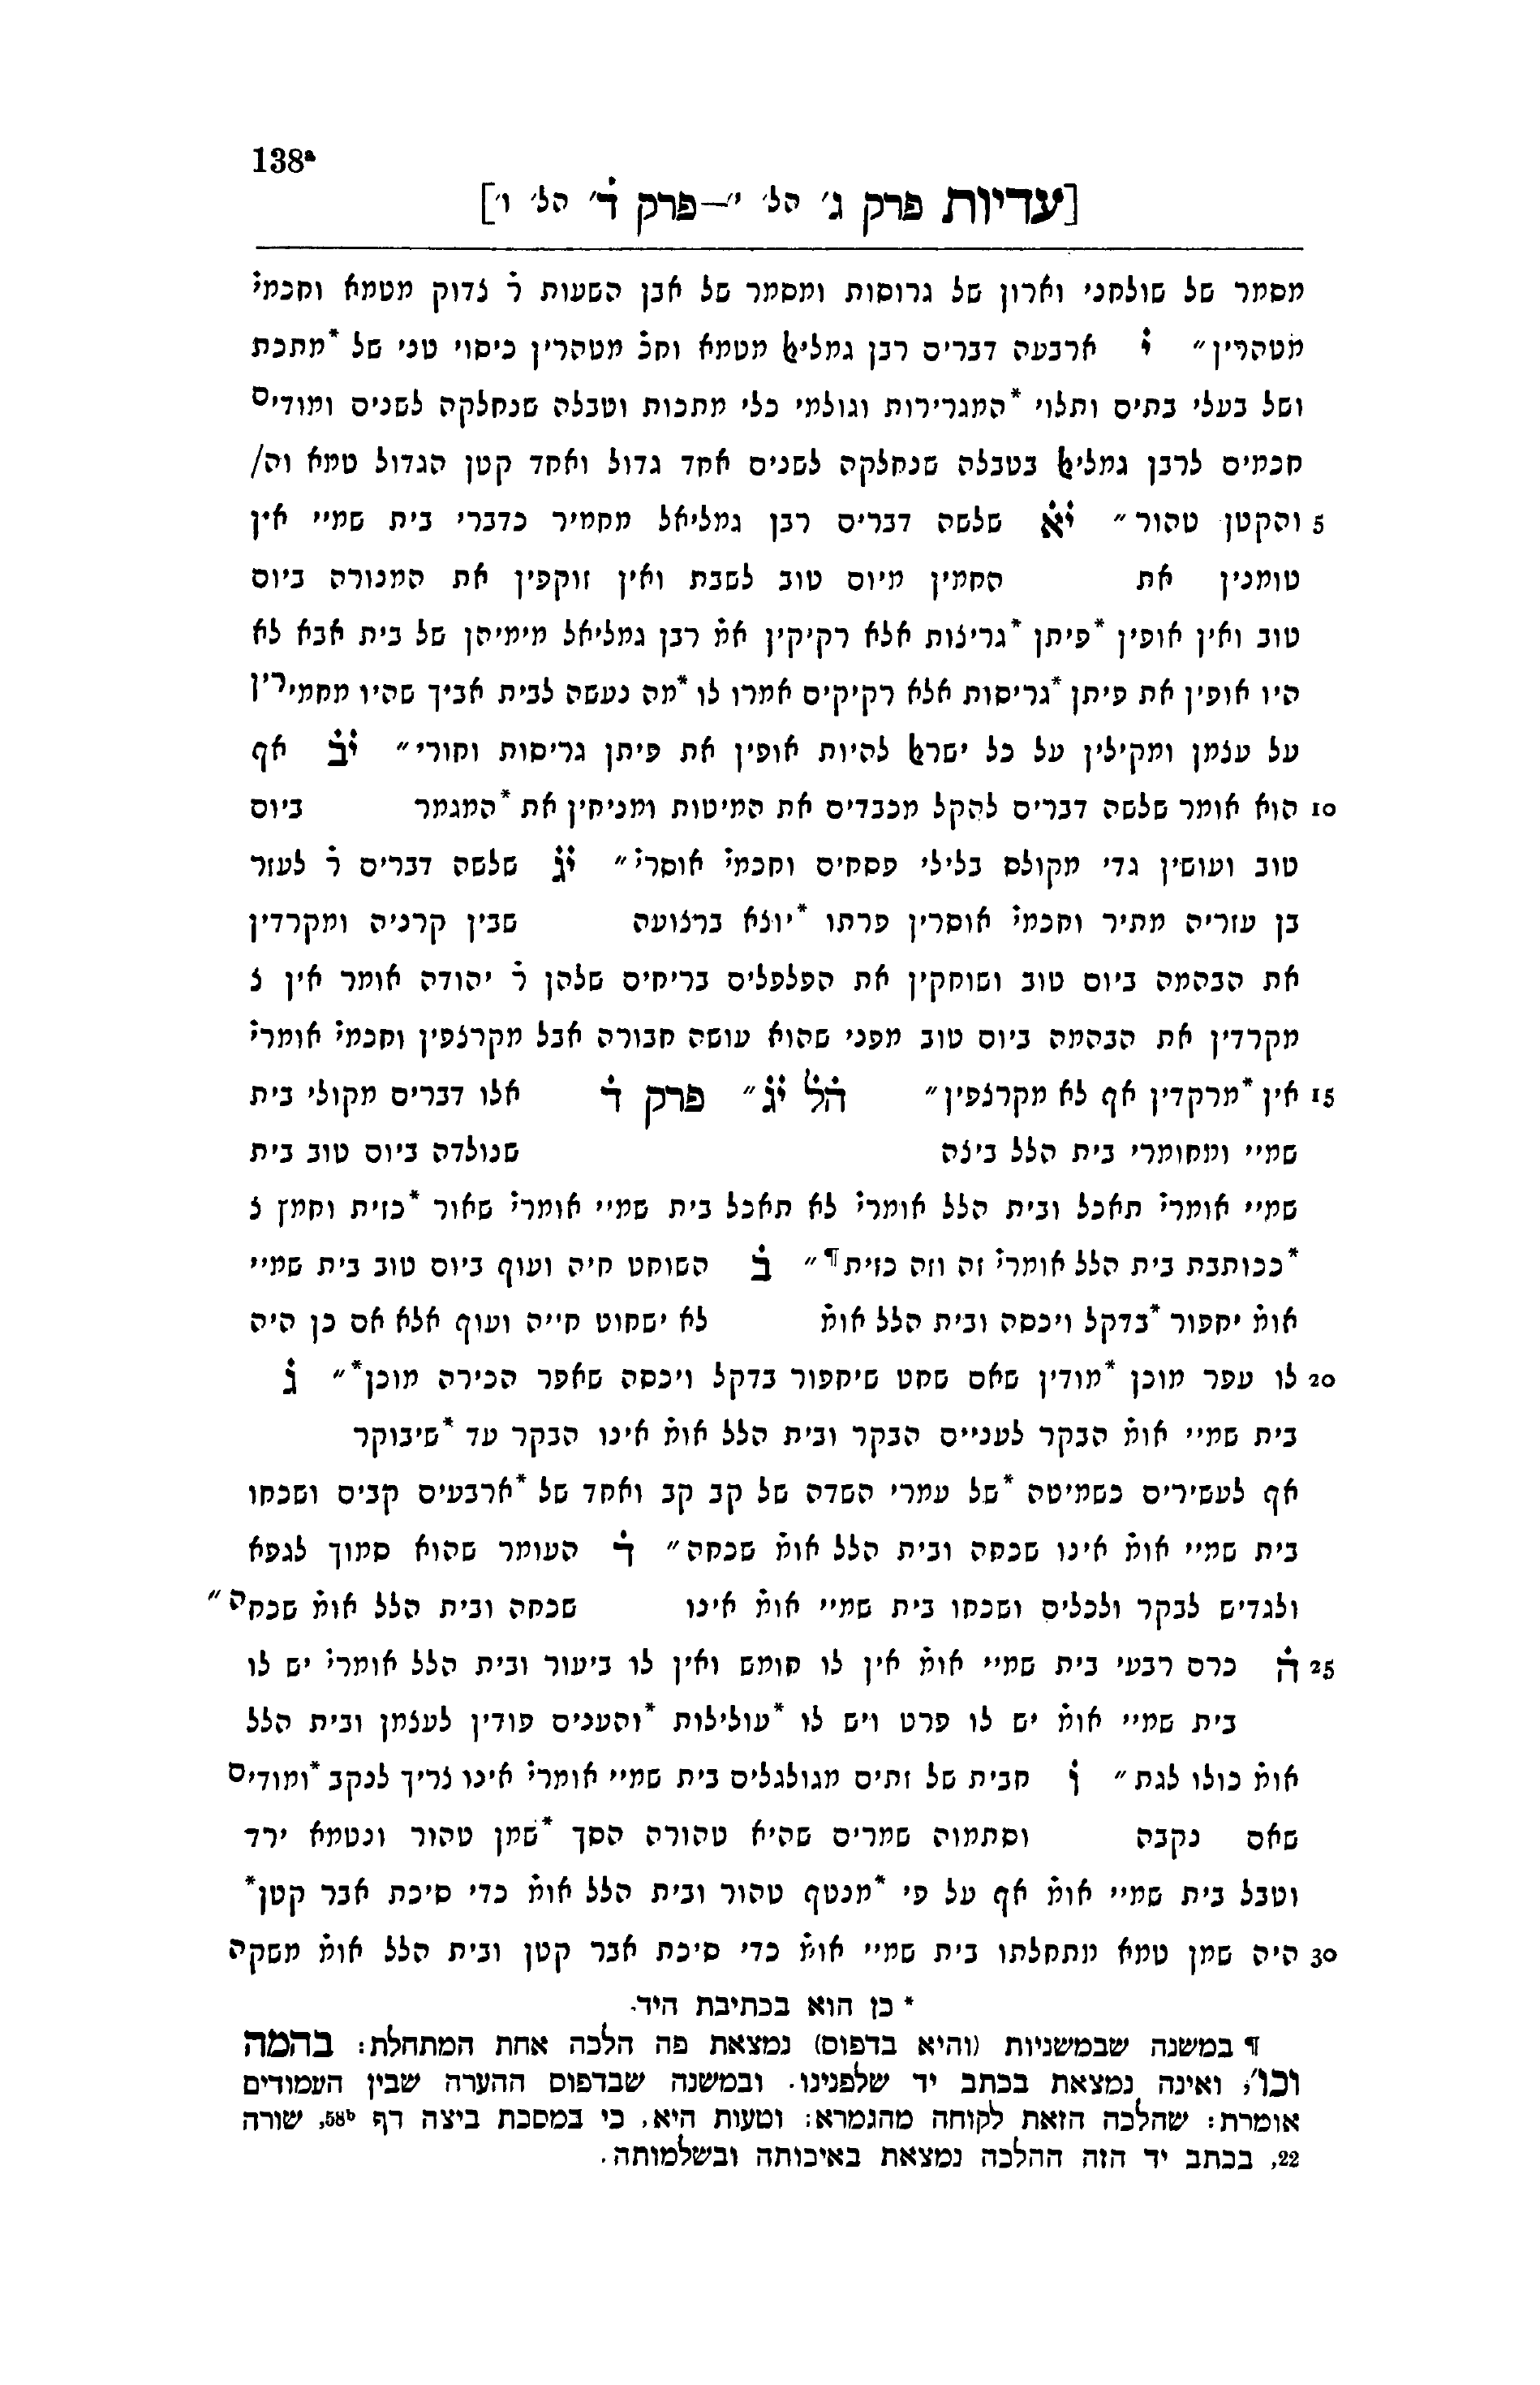 138ª
[עדיות פרק ג׳ הל׳ י׳—פרק ד׳ הל׳ ו׳]
מסמר של שולחני וארון של גרוסות ומסמר של אבן השעות ר̇ צדוק מטמא וחכמי̇
מטהרין״ י̇ ארבעה דברים רבן גמליאל מטמא וחכ̇ מטהרין כיסוי טני של *מתכת
ושל בעלי בתים ותלוי *המגרירות וגולמי כלי מתכות וטבלה שנחלקה לשנים ומודים
חכמים לרבן גמליאל בטבלה שנחלקה לשנים אחד גדול ואחד קטן הגדול טמא וה/
5 והקטן טהור״ י̇א̇ שלשה דברים רבן גמליאל מחמיר כדברי בית שמיי אין
טומנין את החמין מיום טוב לשבת ואין זוקפין את המנורה ביום
טוב ואין אופין *פיתן *גריצות אלא רקיקין אמ̇ רבן גמליאל מימיהן של בית אבא לא
היו אופין את פיתן *גריסות אלא רקיקים אמרו לו *מה נעשה לבית אביך שהיו מחמירין
על עצמן ומקילין על כל ישראל להיות אופין את פיתן גריסות וחורי״ י̇ב̇ אף
10 הוא אומר שלשה דברים להקל מכבדים את המיטות ומניחין את *המגמר ביום
טוב ועושין גדי מקולס בלילי פסחים וחכמי̇ אוסרי̇״ י̇ג̇ שלשה דברים ר̇ לעזר
בן עזריה מתיר וחכמי̇ אוסרין פרתו *יוצא ברצועה שבין קרניה ומקרדין
את הבהמה ביום טוב ושוחקין את הפלפלים בריחים שלהן ר̇ יהודה אומר אין צ
מקרדין את הבהמה ביום טוב מפני שהוא עושה חבורה אבל מקרצפין וחכמי̇ אומרי̇
15 אין *מרקדין אף לא מקרצפין״ ה̇ל̇ י̇ג̇״ פרק ד̇ אלו דברים מקולי בית
שמיי ומחומרי בית הלל ביצה שנולדה ביום טוב בית
שמיי אומרי̇ תאכל ובית הלל אומרי̇ לא תאכל בית שמיי אומרי̇ שאור *כזית וחמץ צ
*ככותבת בית הלל אומרי̇ זה וזה כזית¶״ ב̇ השוחט חיה ועוף ביום טוב בית שמיי
אומ̇ יחפור *בדקל ויכסה ובית הלל אומ̇ לא ישחוט חייה ועוף אלא אם כן היה
20 לו עפר מוכן *מודין שאם שחט שיחפור בדקל ויכסה שאפר הכירה מוכן*״ ג̇
בית שמיי אומ̇ הבקר לעניים הבקר ובית הלל אומ̇ אינו הבקר עד *שיבוקר
אף לעשירים כשמיטה *של עמרי השדה של קב קב ואחד של *ארבעים קבים ושכחו
בית שמיי אומ̇ אינו שכחה ובית הלל אומ̇ שכחה״ ד̇ העומר שהוא סמוך לגפא
ולגדיש לבקר ולכלים ושכחו בית שמיי אומ̇ אינו שכחה ובית הלל אומ̇ שכחה״
25 ה̇ כרם רבעי בית שמיי אומ̇ אין לו חומש ואין לו ביעור ובית הלל אומרי̇ יש לו
בית שמיי אומ̇ יש לו פרט ויש לו *עולילות *והענים פודין לעצמן ובית הלל
אומ̇ כולו לגת״ ו̇ חבית של זתים מגולגלים בית שמיי אומרי̇ אינו צריך לנקב *ומודים
שאם נקבה וסתמוה שמרים שהיא טהורה הסך *שמן טהור ונטמא ירד
וטבל בית שמיי אומ̇ אף על פי *מנטף טהור ובית הלל אומ̇ כדי סיכת אבר קטן*
30 היה שמן טמא מתחלתו בית שמיי אומ̇ כדי סיכת אבר קטן ובית הלל אומ̇ משקה
* כן הוא בכתיבת היד.
¶ במשנה שבמשניות (והיא בדפוס) נמצאת פה הלכה אחת המתחלת: בהמה
וכו׳, ואינה נמצאת בכתב יד שלפנינו. ובמשנה שבדפוס ההערה שבין העמודים
אומרת: שהלכה הזאת לקוחה מהגמרא: וטעות היא, כי במסכת ביצה דף 58ᵇ, שורה
22, בכתב יד הזה ההלכה נמצאת באיכותה ובשלמותה.